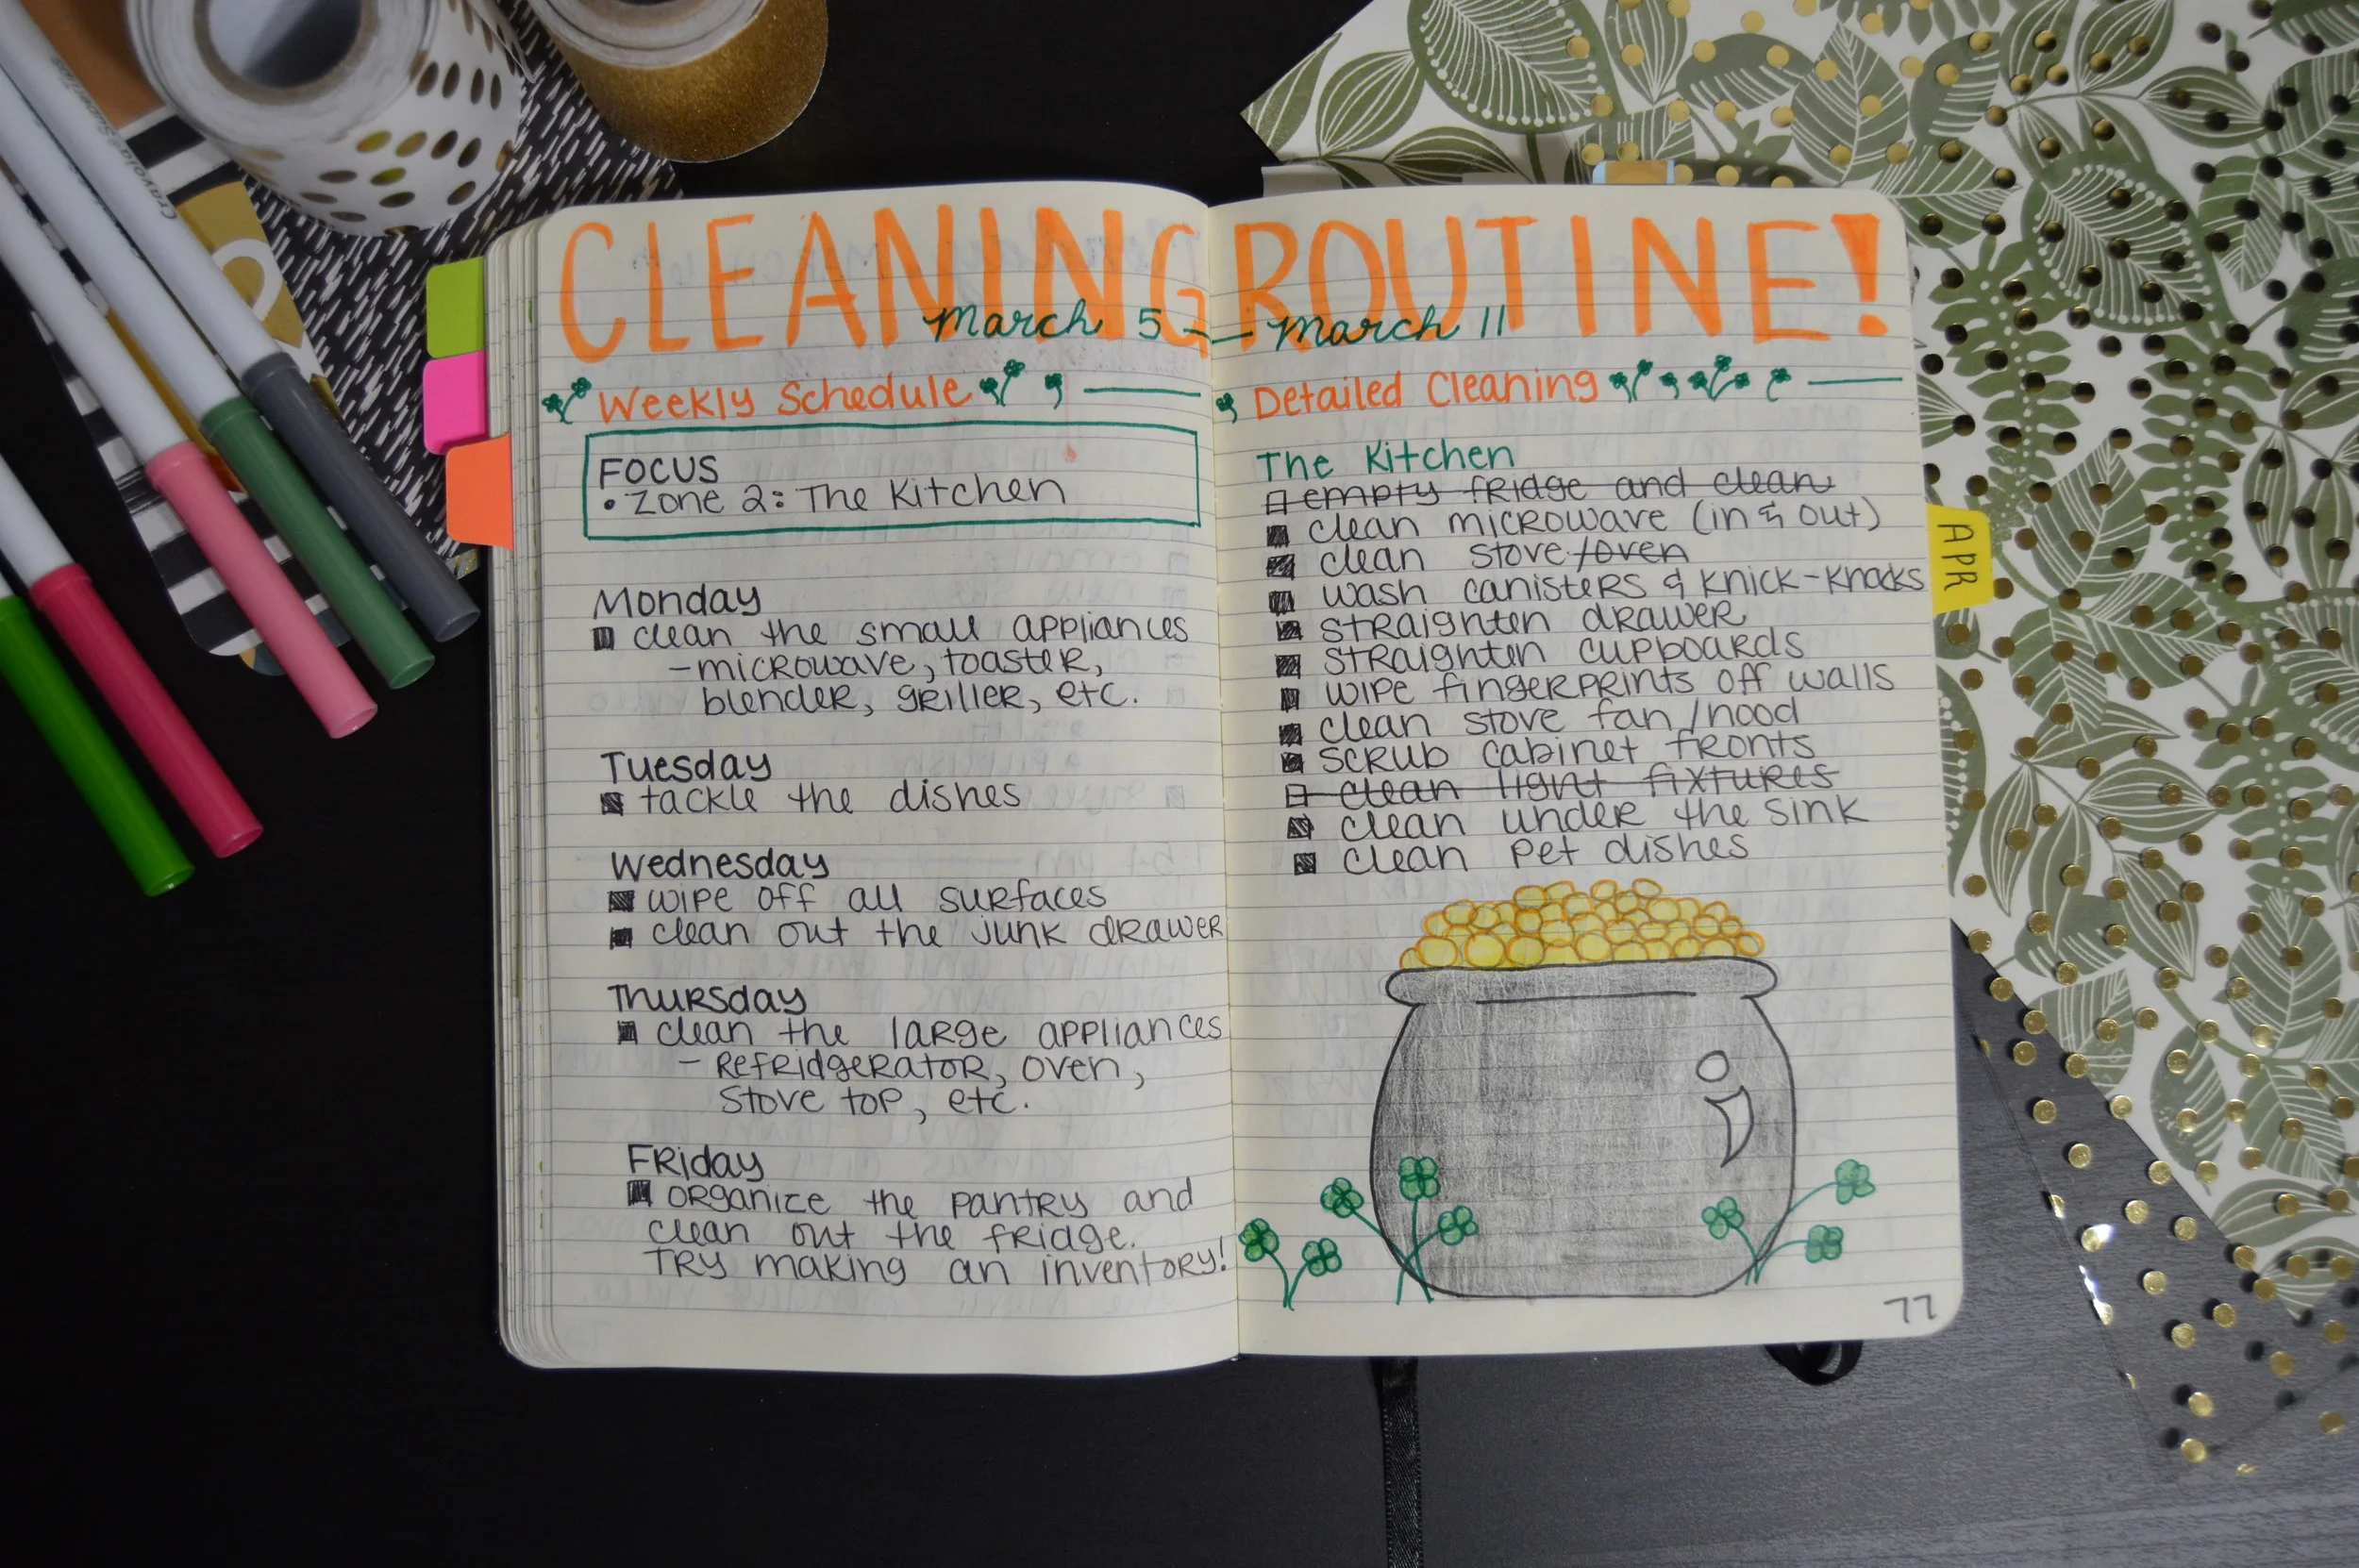 CLEANING ROUTINE!
March 5 — March 11
Weekly Schedule
FOCUS
• Zone 2: The Kitchen
Monday
clean the small appliances
- microwave, toaster,
blender, griller, etc.
Tuesday
tackle the dishes
Wednesday
wipe off all surfaces
clean out the junk drawer
Thursday
clean the large appliances
- Refridgerator, oven,
stove top, etc.
Friday
organize the pantry and
clean out the fridge.
Try making an inventory!
Detailed Cleaning
The Kitchen
empty fridge and clean
clean microwave (in & out)
clean stove/oven
wash canisters & knick-knacks
straighten drawer
straighten cupboards
wipe fingerprints off walls
clean stove fan/hood
scrub cabinet fronts
clean light fixtures
clean under the sink
clean pet dishes
77
APR
Crayola SuperTips